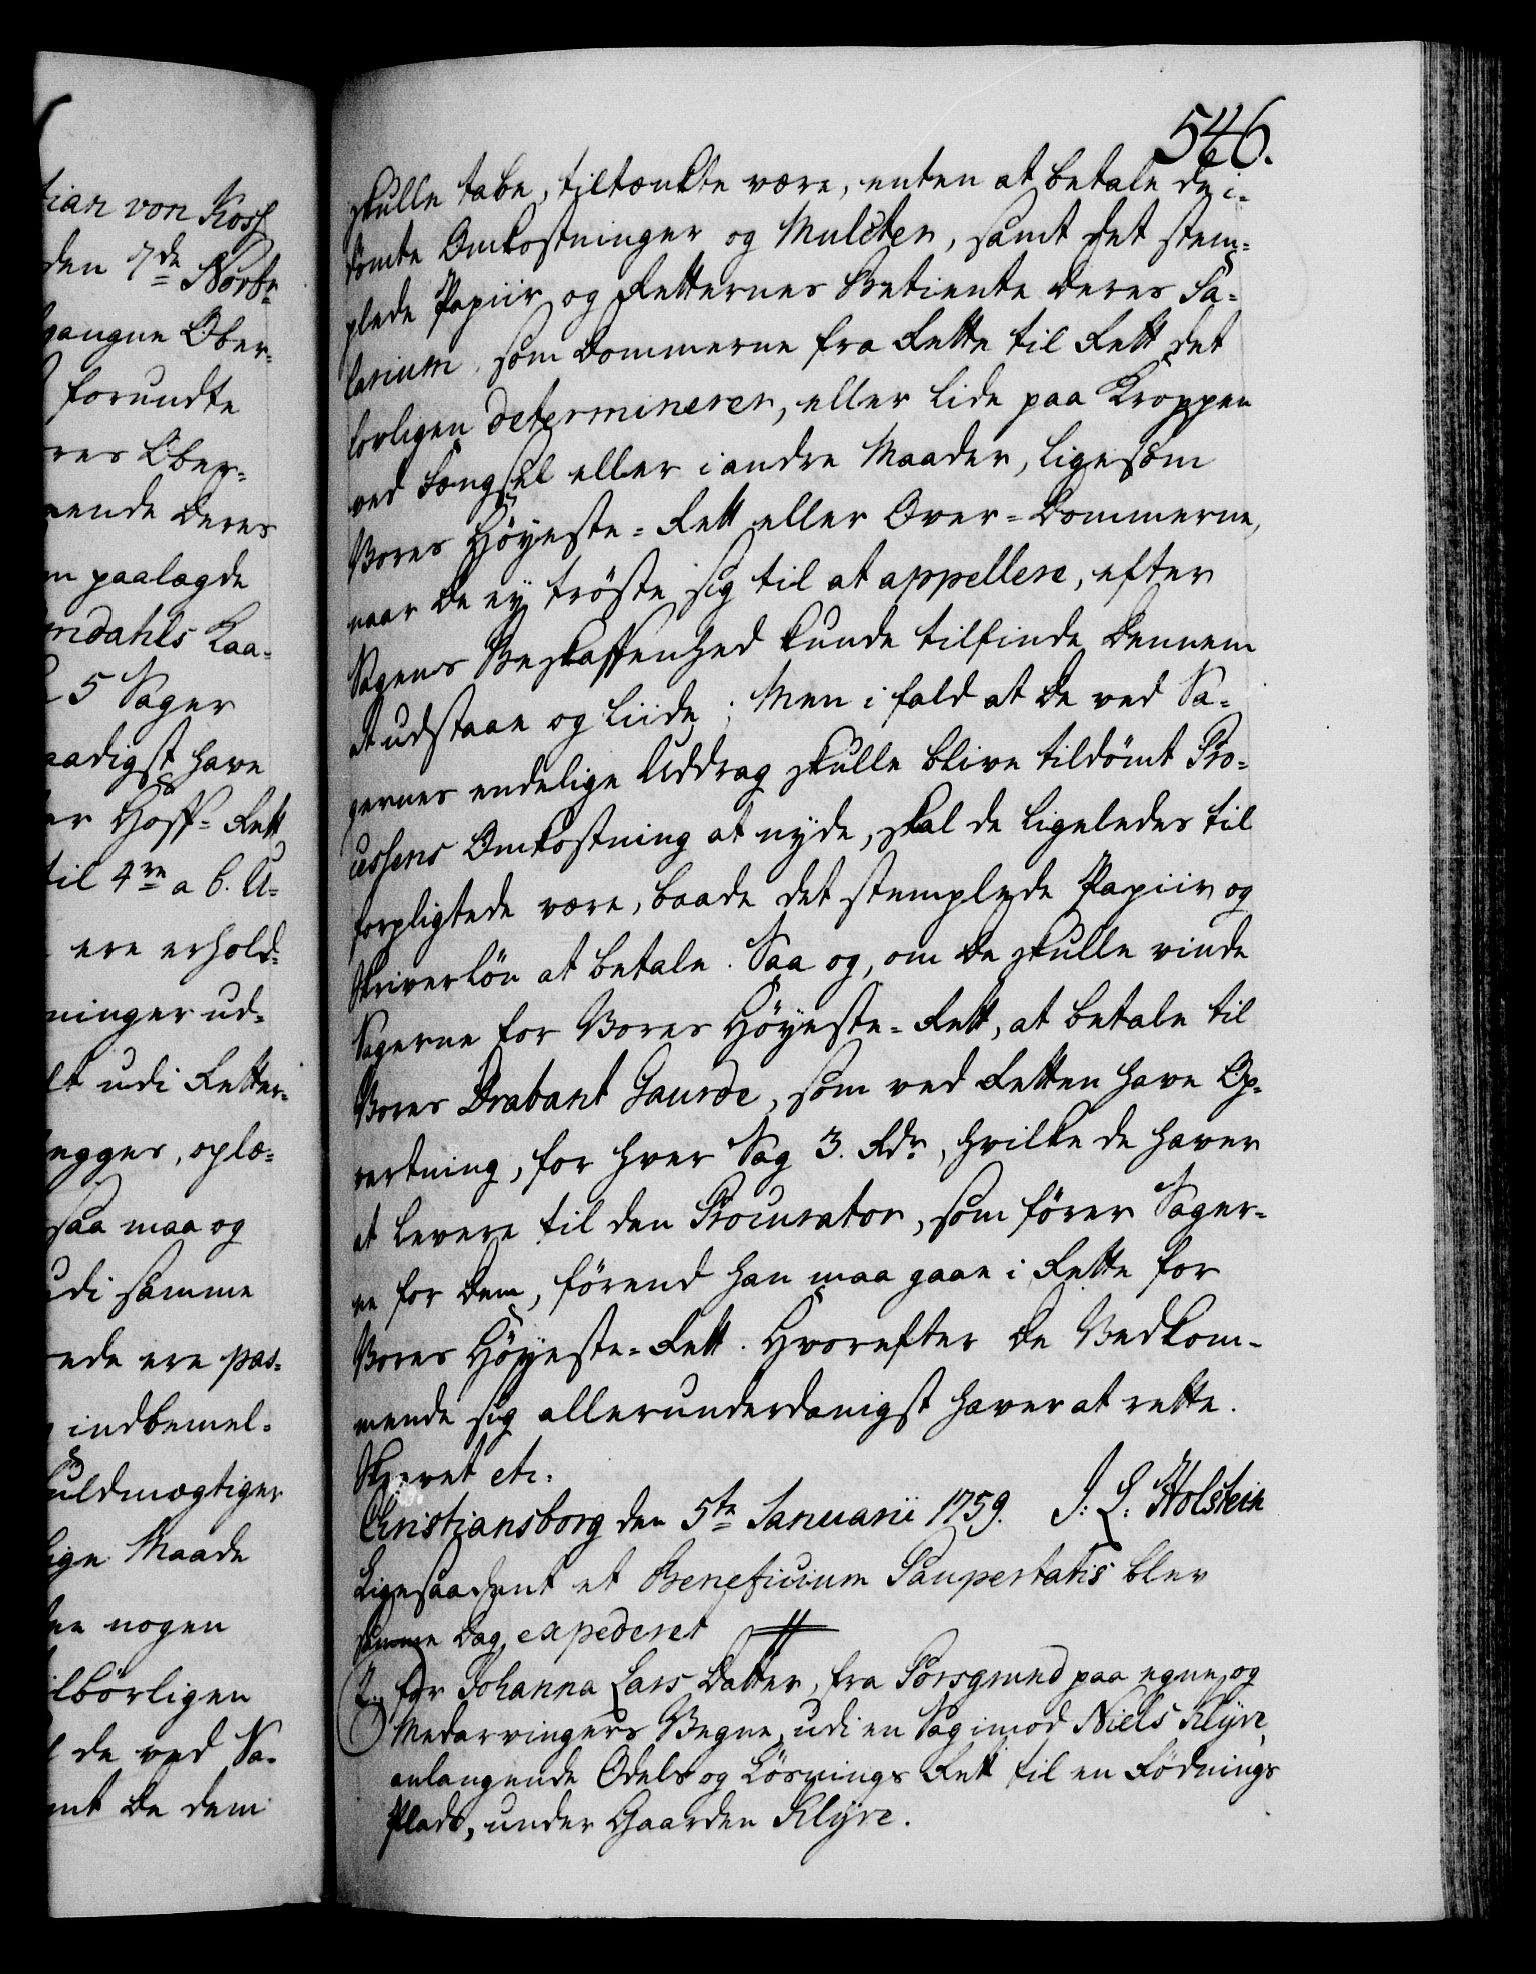 546.
skulle tabe, tiltænkte være, enten at betale de i-
dømte Omkostninger og Mulcter, samt det stem-
plede Papiir og Retternes Betiente deres Sa-
larium, som Dommerne fra Rette til Rett det
lovligen determinerer, eller lide paa Kroppen
ved Fængsel eller i andre Maader, ligesom
Vores Höyeste-Rett eller Over-Dommerne,
naar de ey tröste sig til at appellere, efter
Sagens Beskaffenhed kunde tilfinde dennem
at udstaae og liide; Men i fald at de ved Sa-
gernes endelige Uddrag skulle blive tildömt Pro-
cessens Omkostning at nyde, skal de ligeledes til
forpligtede være, baade det stemplede Papiir og
Skriverlön at betale. Saa og, om de skulle vinde
Sagerne for Vores Höyeste-Rett, at betale til
Vores Drabant Gaurde, som ved Retten have Op-
vartning, for hver Sag 3. Rdr, hvilke de haver
at levere til den Procurator, som förer Sager-
ne for dem, förend han maa gaae i Rette for
Vores Höyeste-Rett. Hvorefter de Vedkom-
mende sig allerunderdanigst haver at rette.
Skrevet etc.
Christiansborg den 5te Januarii 1759. J. L. Holstein
Ligesaadant et Beneficium Paupertatis blev
samme Dag expederet
for Johanna Lars Datter, fra Porsgrund paa egne og
Medarvingers Vegne, udi en Sag imod Niels Klÿve,
anlangende Odels og Lösnings Rett til en Rödnings
Plads, under Gaarden Klÿve.
tian von Koss
den 7de Novbr
gangne Ober-
forundte
res Ober-
deres
paalagde
mdahls Kaa-
5 Sager
aadigst have
Hoff-Rett
til 4re a 6. U-
ere erhold-
ninger ud-
udi Retter-
egges, oplæ-
saa maa og
udi samme
ede ere pas-
indbemel-
uldmægtiger
lige Maade
nogen
ilbörligen
de ved Sa-
de dem